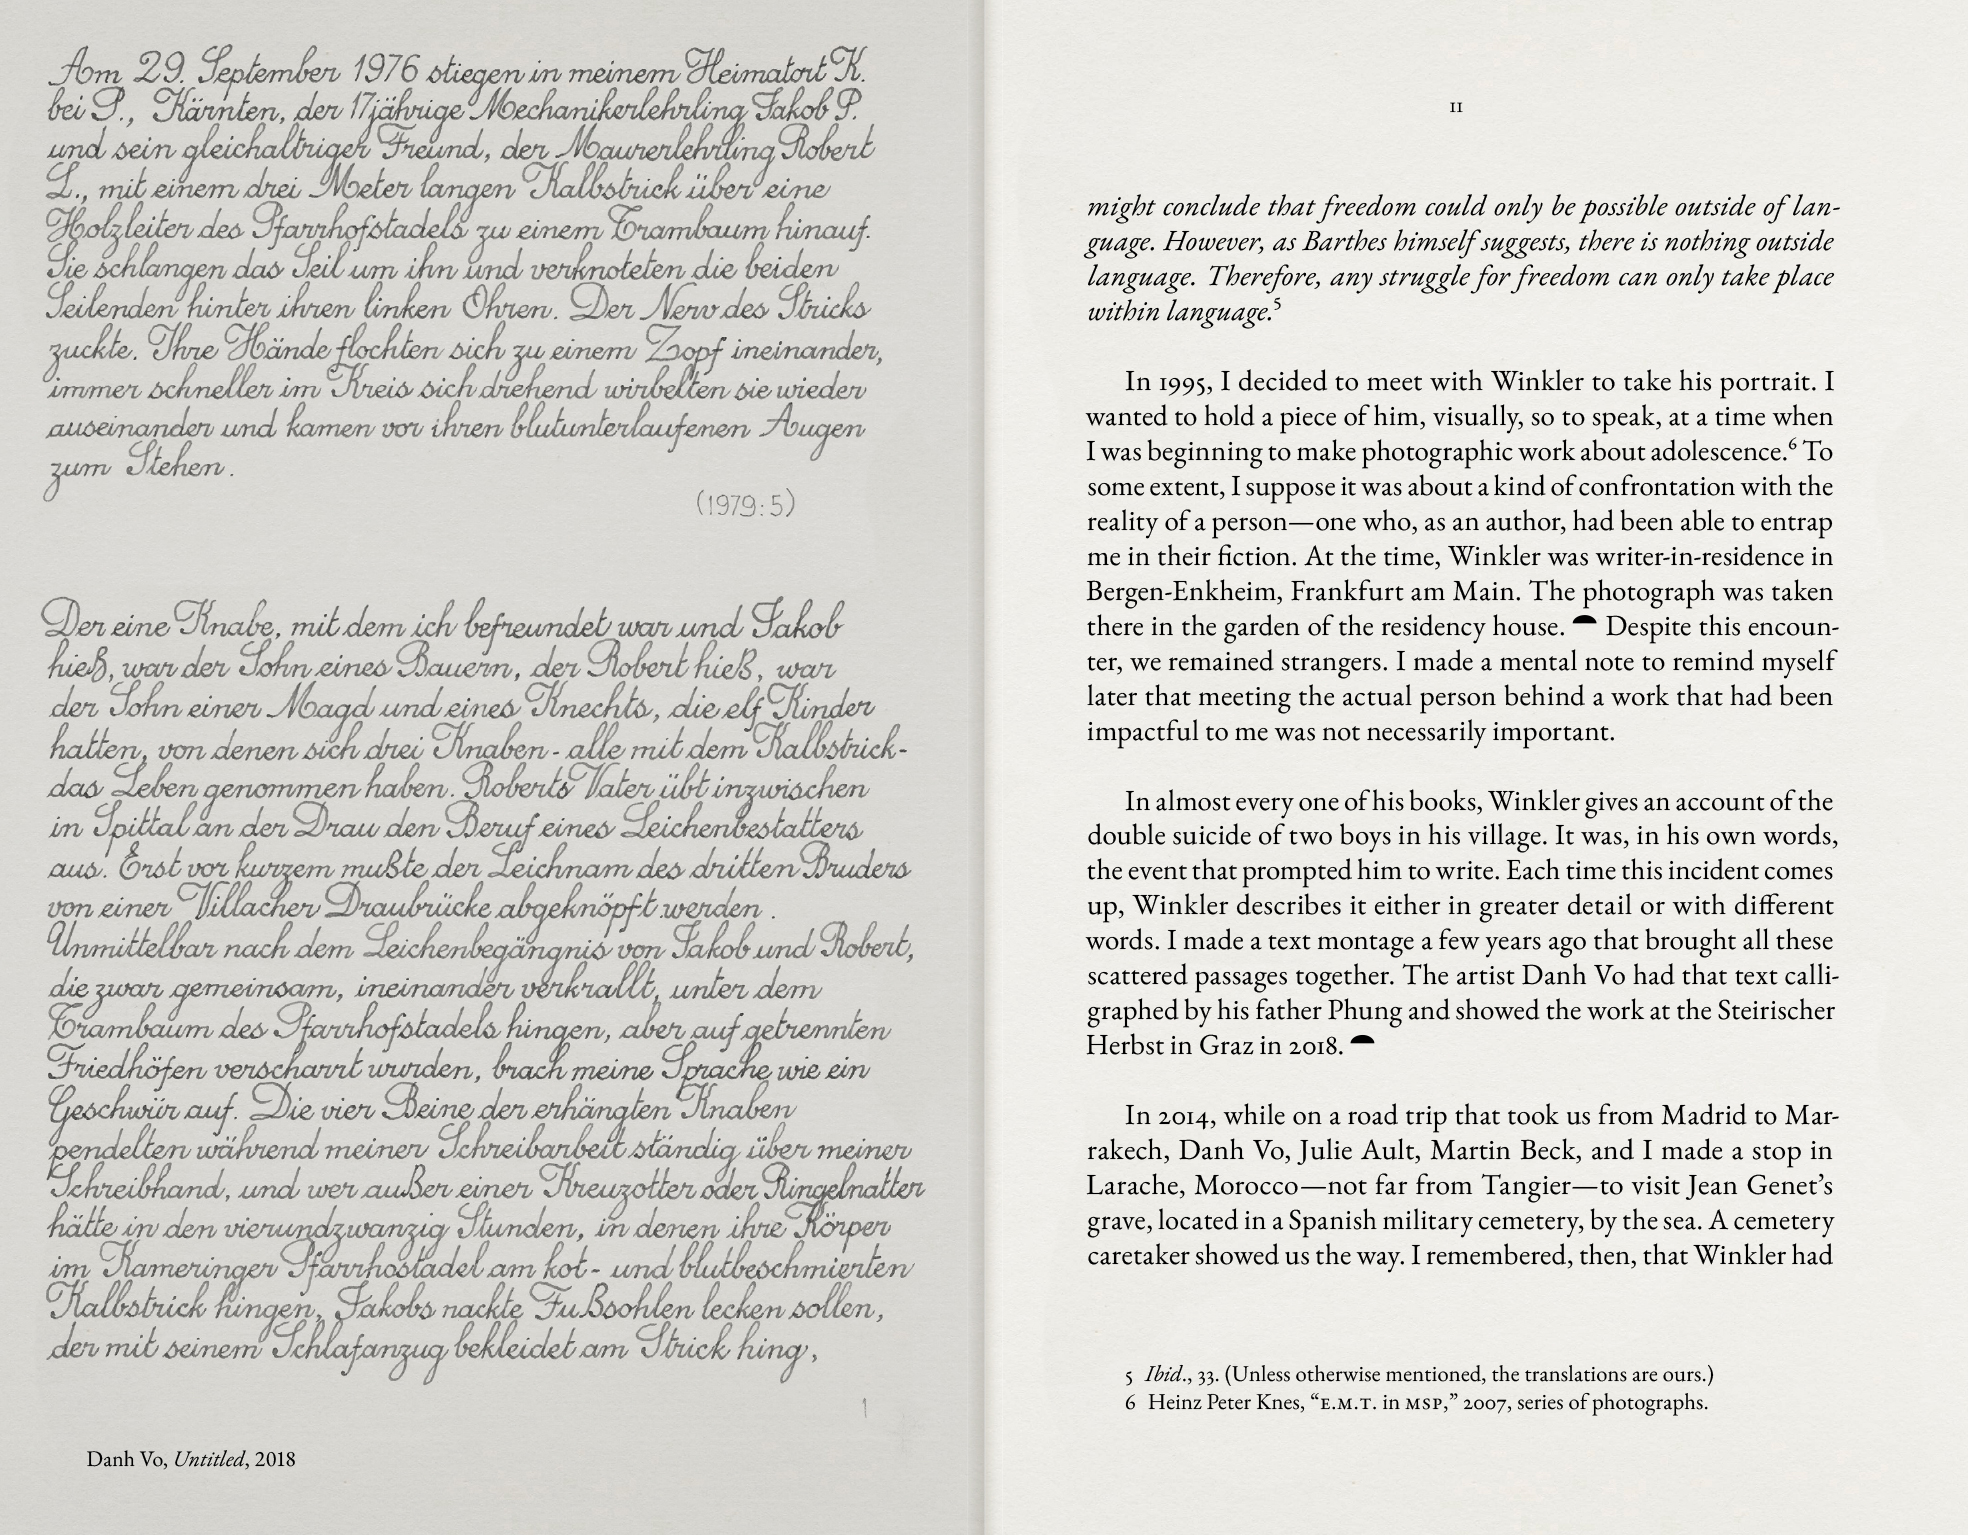 Am 29. September 1976 stiegen in meinem Heimatort K.
bei P., Kärnten, der 17jährige Mechanikerlehrling Jakob P.
und sein gleichaltriger Freund, der Maurerlehrling Robert
L., mit einem drei Meter langen Kalbstrick über eine
Holzleiter des Pfarrhofstadels zu einem Trambaum hinauf.
Sie schlangen das Seil um ihn und verknoteten die beiden
Seilenden hinter ihren linken Ohren. Der Nerv des Stricks
zuckte. Ihre Hände flochten sich zu einem Zopf ineinander,
immer schneller im Kreis sich drehend wirbelten sie wieder
auseinander und kamen vor ihren blutunterlaufenen Augen
zum Stehen.
(1979:5)
Der eine Knabe, mit dem ich befreundet war und Jakob
hieß, war der Sohn eines Bauern, der Robert hieß, war
der Sohn einer Magd und eines Knechts, die elf Kinder
hatten, von denen sich drei Knaben - alle mit dem Kalbstrick-
das Leben genommen haben. Roberts Vater übt inzwischen
in Spittal an der Drau den Beruf eines Leichenbestatters
aus. Erst vor kurzem mußte der Leichnam des dritten Bruders
von einer Villacher Draubrücke abgeknöpft werden.
Unmittelbar nach dem Leichenbegängnis von Jakob und Robert,
die zwar gemeinsam, ineinander verkrallt, unter dem
Trambaum des Pfarrhofstadels hingen, aber auf getrennten
Friedhöfen verscharrt wurden, brach meine Sprache wie ein
Geschwür auf. Die vier Beine der erhängten Knaben
pendelten während meiner Schreibarbeit ständig über meiner
Schreibhand, und wer außer einer Kreuzotter oder Ringelnatter
hätte in den vierundzwanzig Stunden, in denen ihre Körper
im Kameringer Pfarrhostadel am kot- und blutbeschmierten
Kalbstrick hingen, Jakobs nackte Fußsohlen lecken sollen,
der mit seinem Schlafanzug bekleidet am Strick hing,
1
Danh Vo, Untitled, 2018
11
might conclude that freedom could only be possible outside of lan-
guage. However, as Barthes himself suggests, there is nothing outside
language. Therefore, any struggle for freedom can only take place
within language.5
In 1995, I decided to meet with Winkler to take his portrait. I
wanted to hold a piece of him, visually, so to speak, at a time when
I was beginning to make photographic work about adolescence.6 To
some extent, I suppose it was about a kind of confrontation with the
reality of a person—one who, as an author, had been able to entrap
me in their fiction. At the time, Winkler was writer-in-residence in
Bergen-Enkheim, Frankfurt am Main. The photograph was taken
there in the garden of the residency house. Despite this encoun-
ter, we remained strangers. I made a mental note to remind myself
later that meeting the actual person behind a work that had been
impactful to me was not necessarily important.
In almost every one of his books, Winkler gives an account of the
double suicide of two boys in his village. It was, in his own words,
the event that prompted him to write. Each time this incident comes
up, Winkler describes it either in greater detail or with different
words. I made a text montage a few years ago that brought all these
scattered passages together. The artist Danh Vo had that text calli-
graphed by his father Phung and showed the work at the Steirischer
Herbst in Graz in 2018.
In 2014, while on a road trip that took us from Madrid to Mar-
rakech, Danh Vo, Julie Ault, Martin Beck, and I made a stop in
Larache, Morocco—not far from Tangier—to visit Jean Genet’s
grave, located in a Spanish military cemetery, by the sea. A cemetery
caretaker showed us the way. I remembered, then, that Winkler had
5 Ibid., 33. (Unless otherwise mentioned, the translations are ours.)
6 Heinz Peter Knes, “E.M.T. in MSP,” 2007, series of photographs.